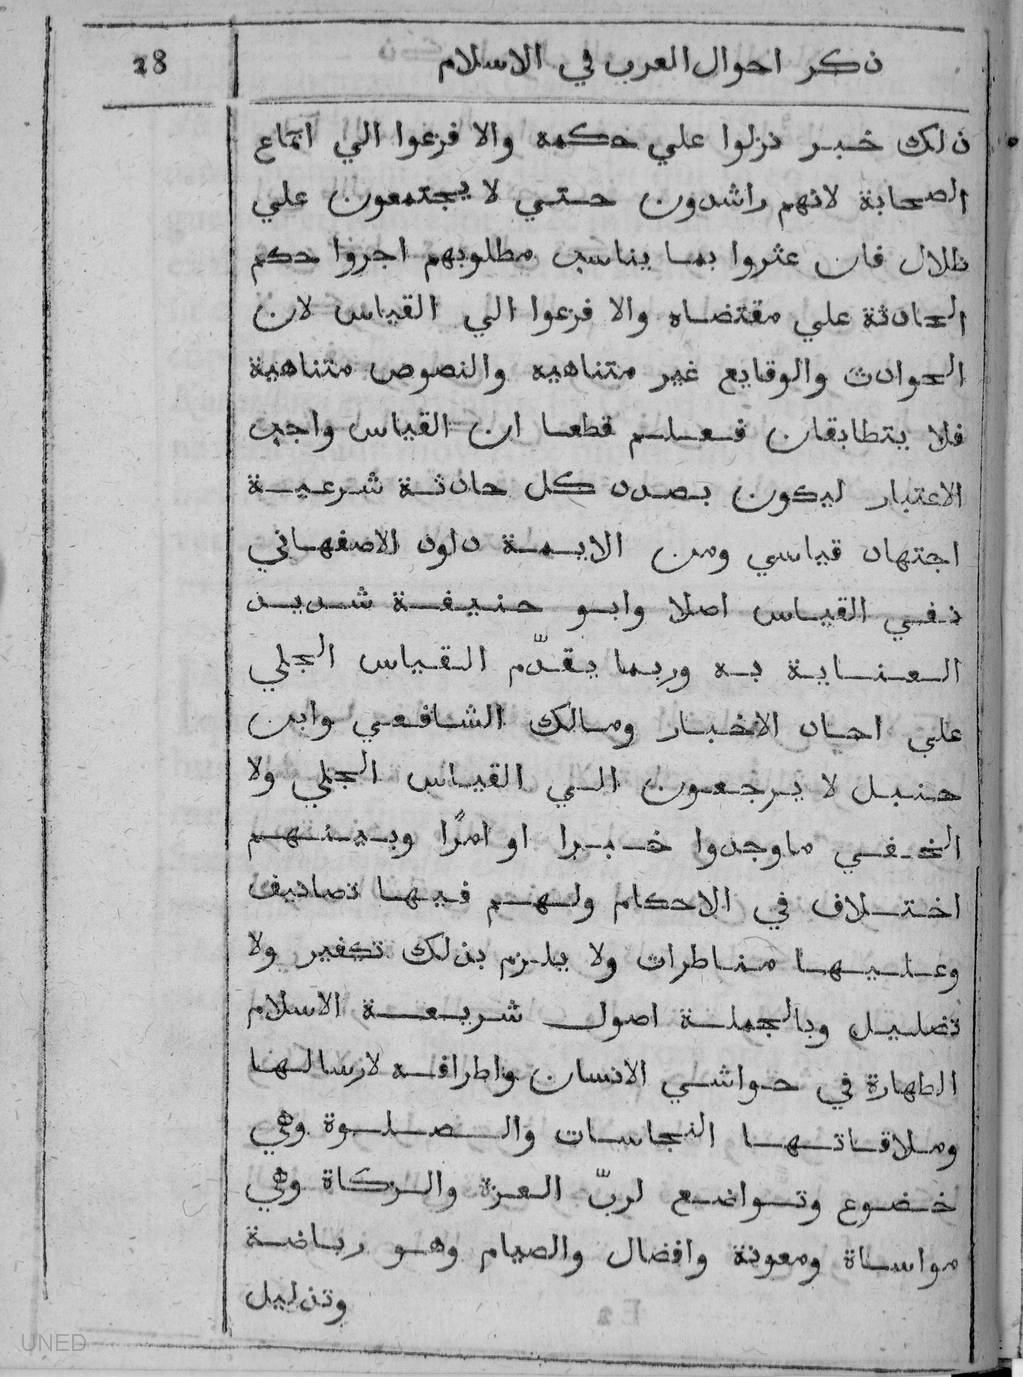 28
ذكر احوال العرب في الاسلام
ذلك خبر نزلوا علي حكمه والا فزعوا الي اتماع
الصحابة لانهم راشدون حتي لا يجتمعون علي
ظلال فان عثروا بما يناسب مطلوبهم اجروا حكم
الحادثة علي مقتضاه والا فزعوا الي القياس لان
الحوادث والوقايع غير متناهيه والنصوص متناهية
فلا يتطابقان فعلم قطعا ان القياس واجب
الاعتبار ليكون بصدد كل حادثة شرعية
اجتهاد قياسي ومن الايمة داود الاصفهاني
نفي القياس اصلا وابو حنيفة شديد
العناية به وربما يقدّم القياس الجلي
علي احاد الاخبار ومالك الشافعي وابن
حنبل لا يرجعون الي القياس الجلي ولا
الخفي ما وجدوا خبرا او امرًا وبينهم
اختلاف في الاحكام ولهم فيها تصانيف
وعليها مناظرات ولا يلزم بذلك تكفير ولا
تضليل وبالجملة اصول شريعة الاسلام
الطهارة في حواشي الانسان واطرافه لارسالها
وملاقاتها النجاسات والصلوة وهي
خضوع وتواضع لربّ العزة والزكاة وهي
مواساة ومعونة وافضال والصيام وهو رياضة
وتذليل
UNED